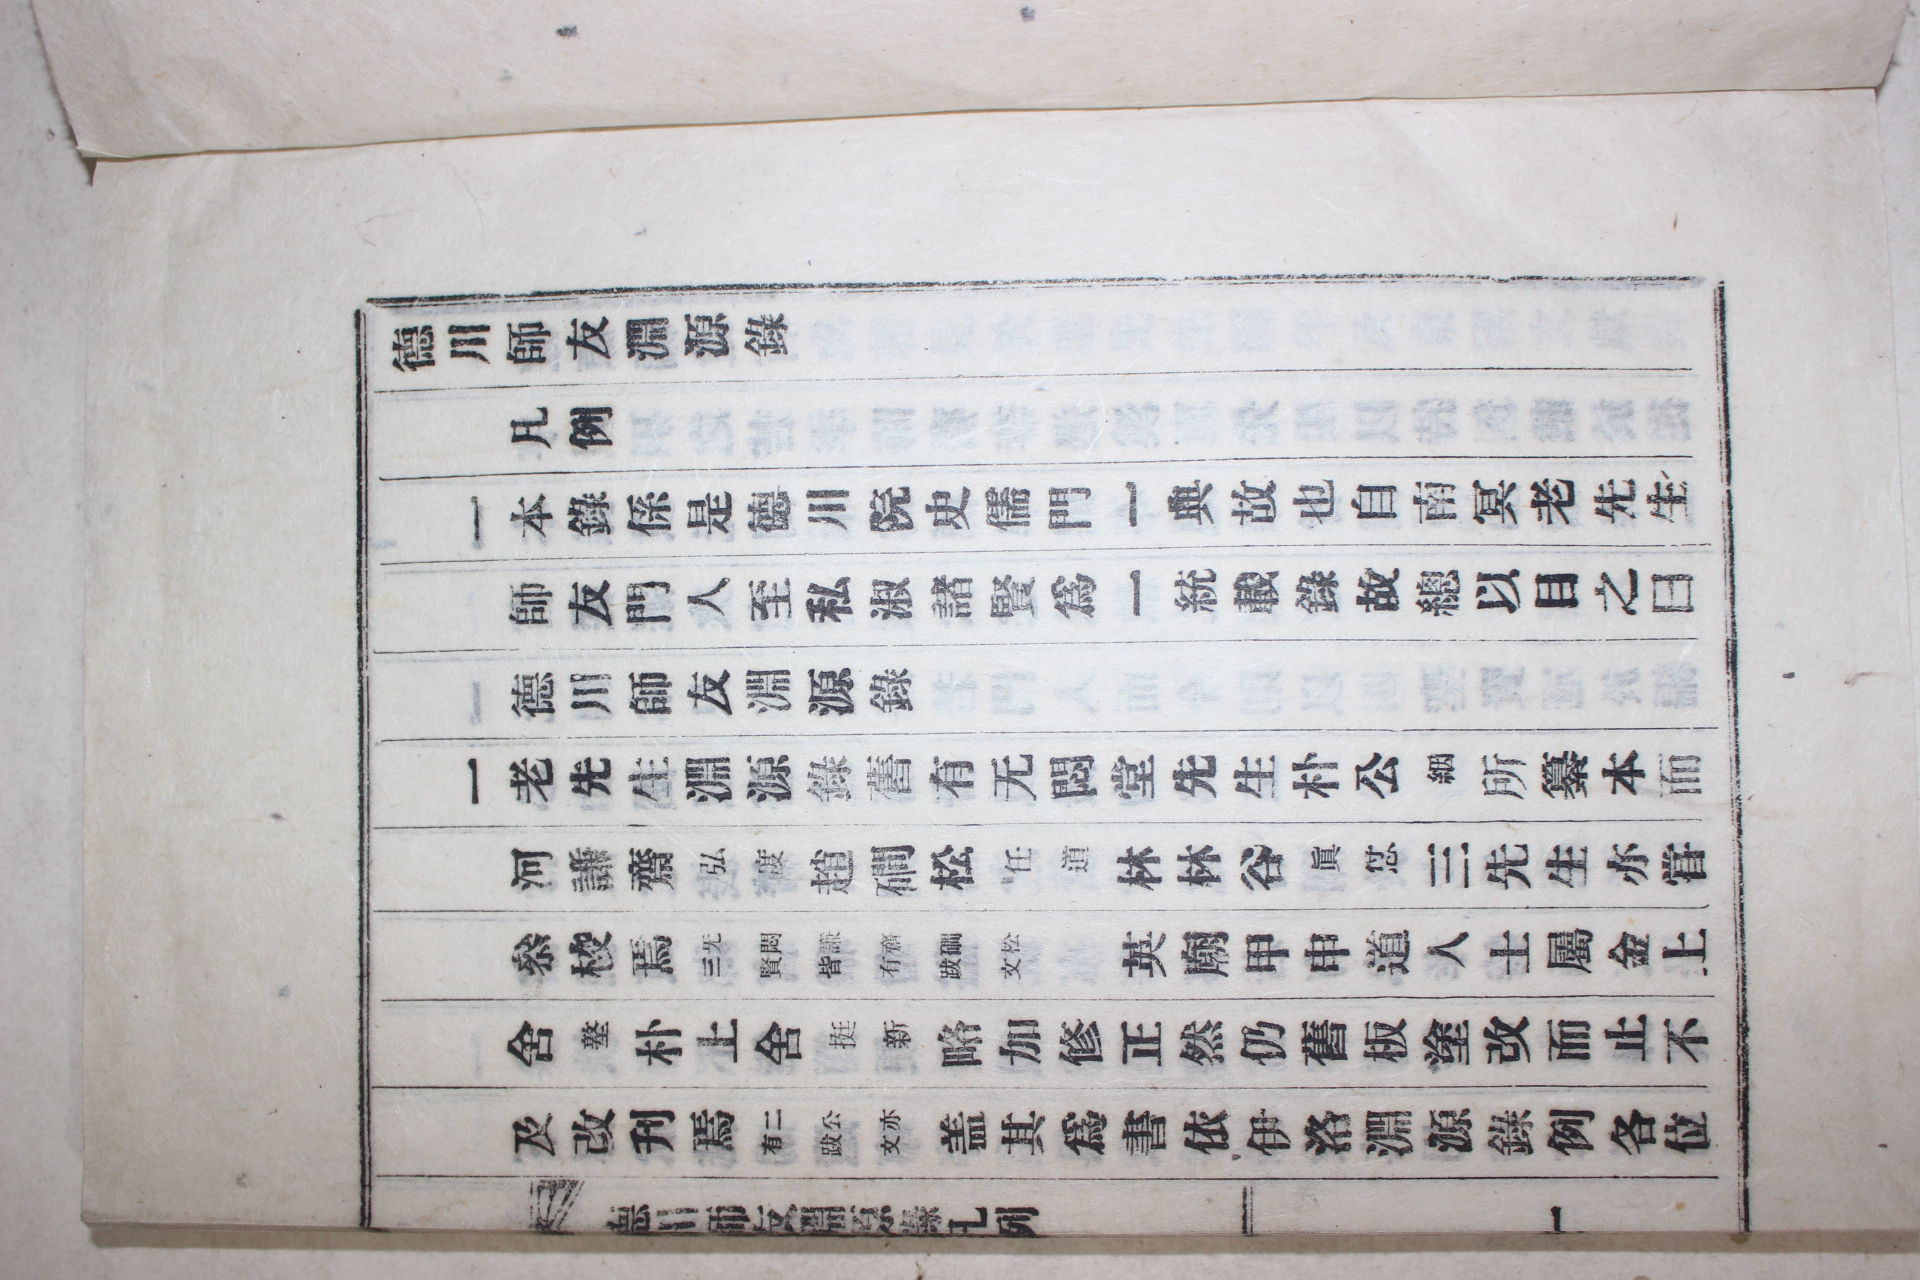 德川師友淵源錄
凡例
一本錄係是德川院史儒門一典故也自南冥老先生
師友門人至私淑諸賢爲一統載錄故總以目之曰
德川師友淵源錄
一老先生淵源錄舊有无悶堂先生朴公絪所纂本而
河謙齋弘度趙磵松任道林林谷眞怤三先生亦嘗
叅校焉无悶謙齋磵松三賢皆有跋文英廟甲申道人士屬金上
舍墪朴上舍挺新略加修正然仍舊板塗改而止不
及改刊焉二公亦有跋文盖其爲書依伊洛淵源錄例各位
德川師友淵源錄凡例 一